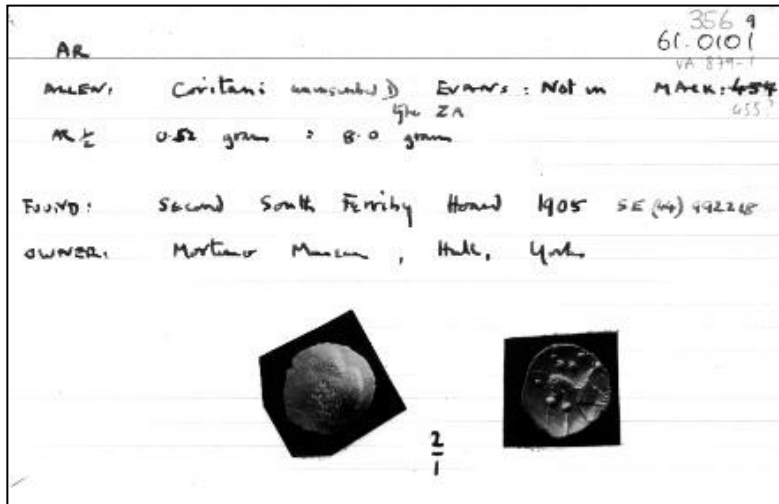 356 9
AR
61.0101
VA 879-1
ALLEN: Coritani uninscribed D EVANS: Not in MACK: 454
type ZA
455?
AR ½ 0.52 gram = 8.0 grains
FOUND: Second South Ferriby Hoard 1905 SE (44) 992218
OWNER: Mortimer Museum, Hull, Yorks
2
1